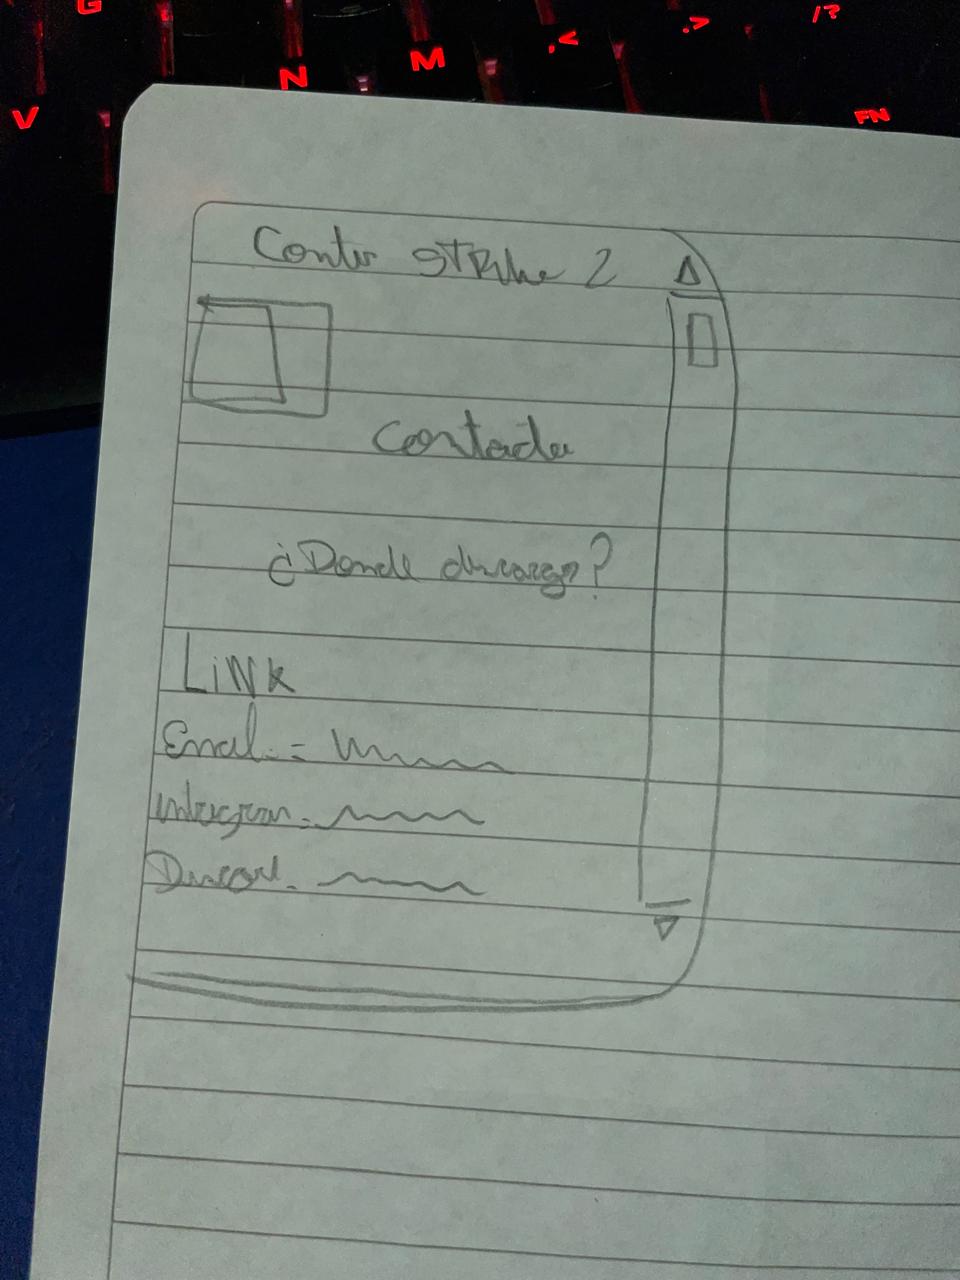 G
.< .> /?
V N M FN
Conter STRike 2
Contador
¿Donde descargo?
LiNK
Email :
intagram :
Discord .